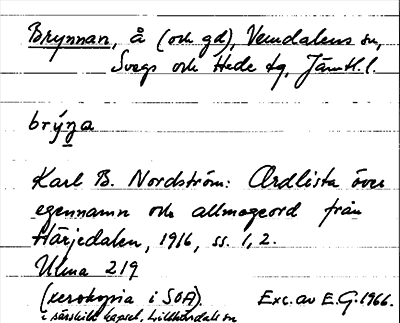 Brynnan, å (och gd), Vemdalens sn,
Svegs och Hede tg, Jämtl. l.
brýn̲a
Karl B. Nordström: Ordlista över
egennamn och allmogeord från
Härjedalen, 1916, ss. 1, 2.
Ulma 219
(xerokopia i SOA). Exc. av E.G. 1966.
i särskild kapsel, Lillhärdals sn